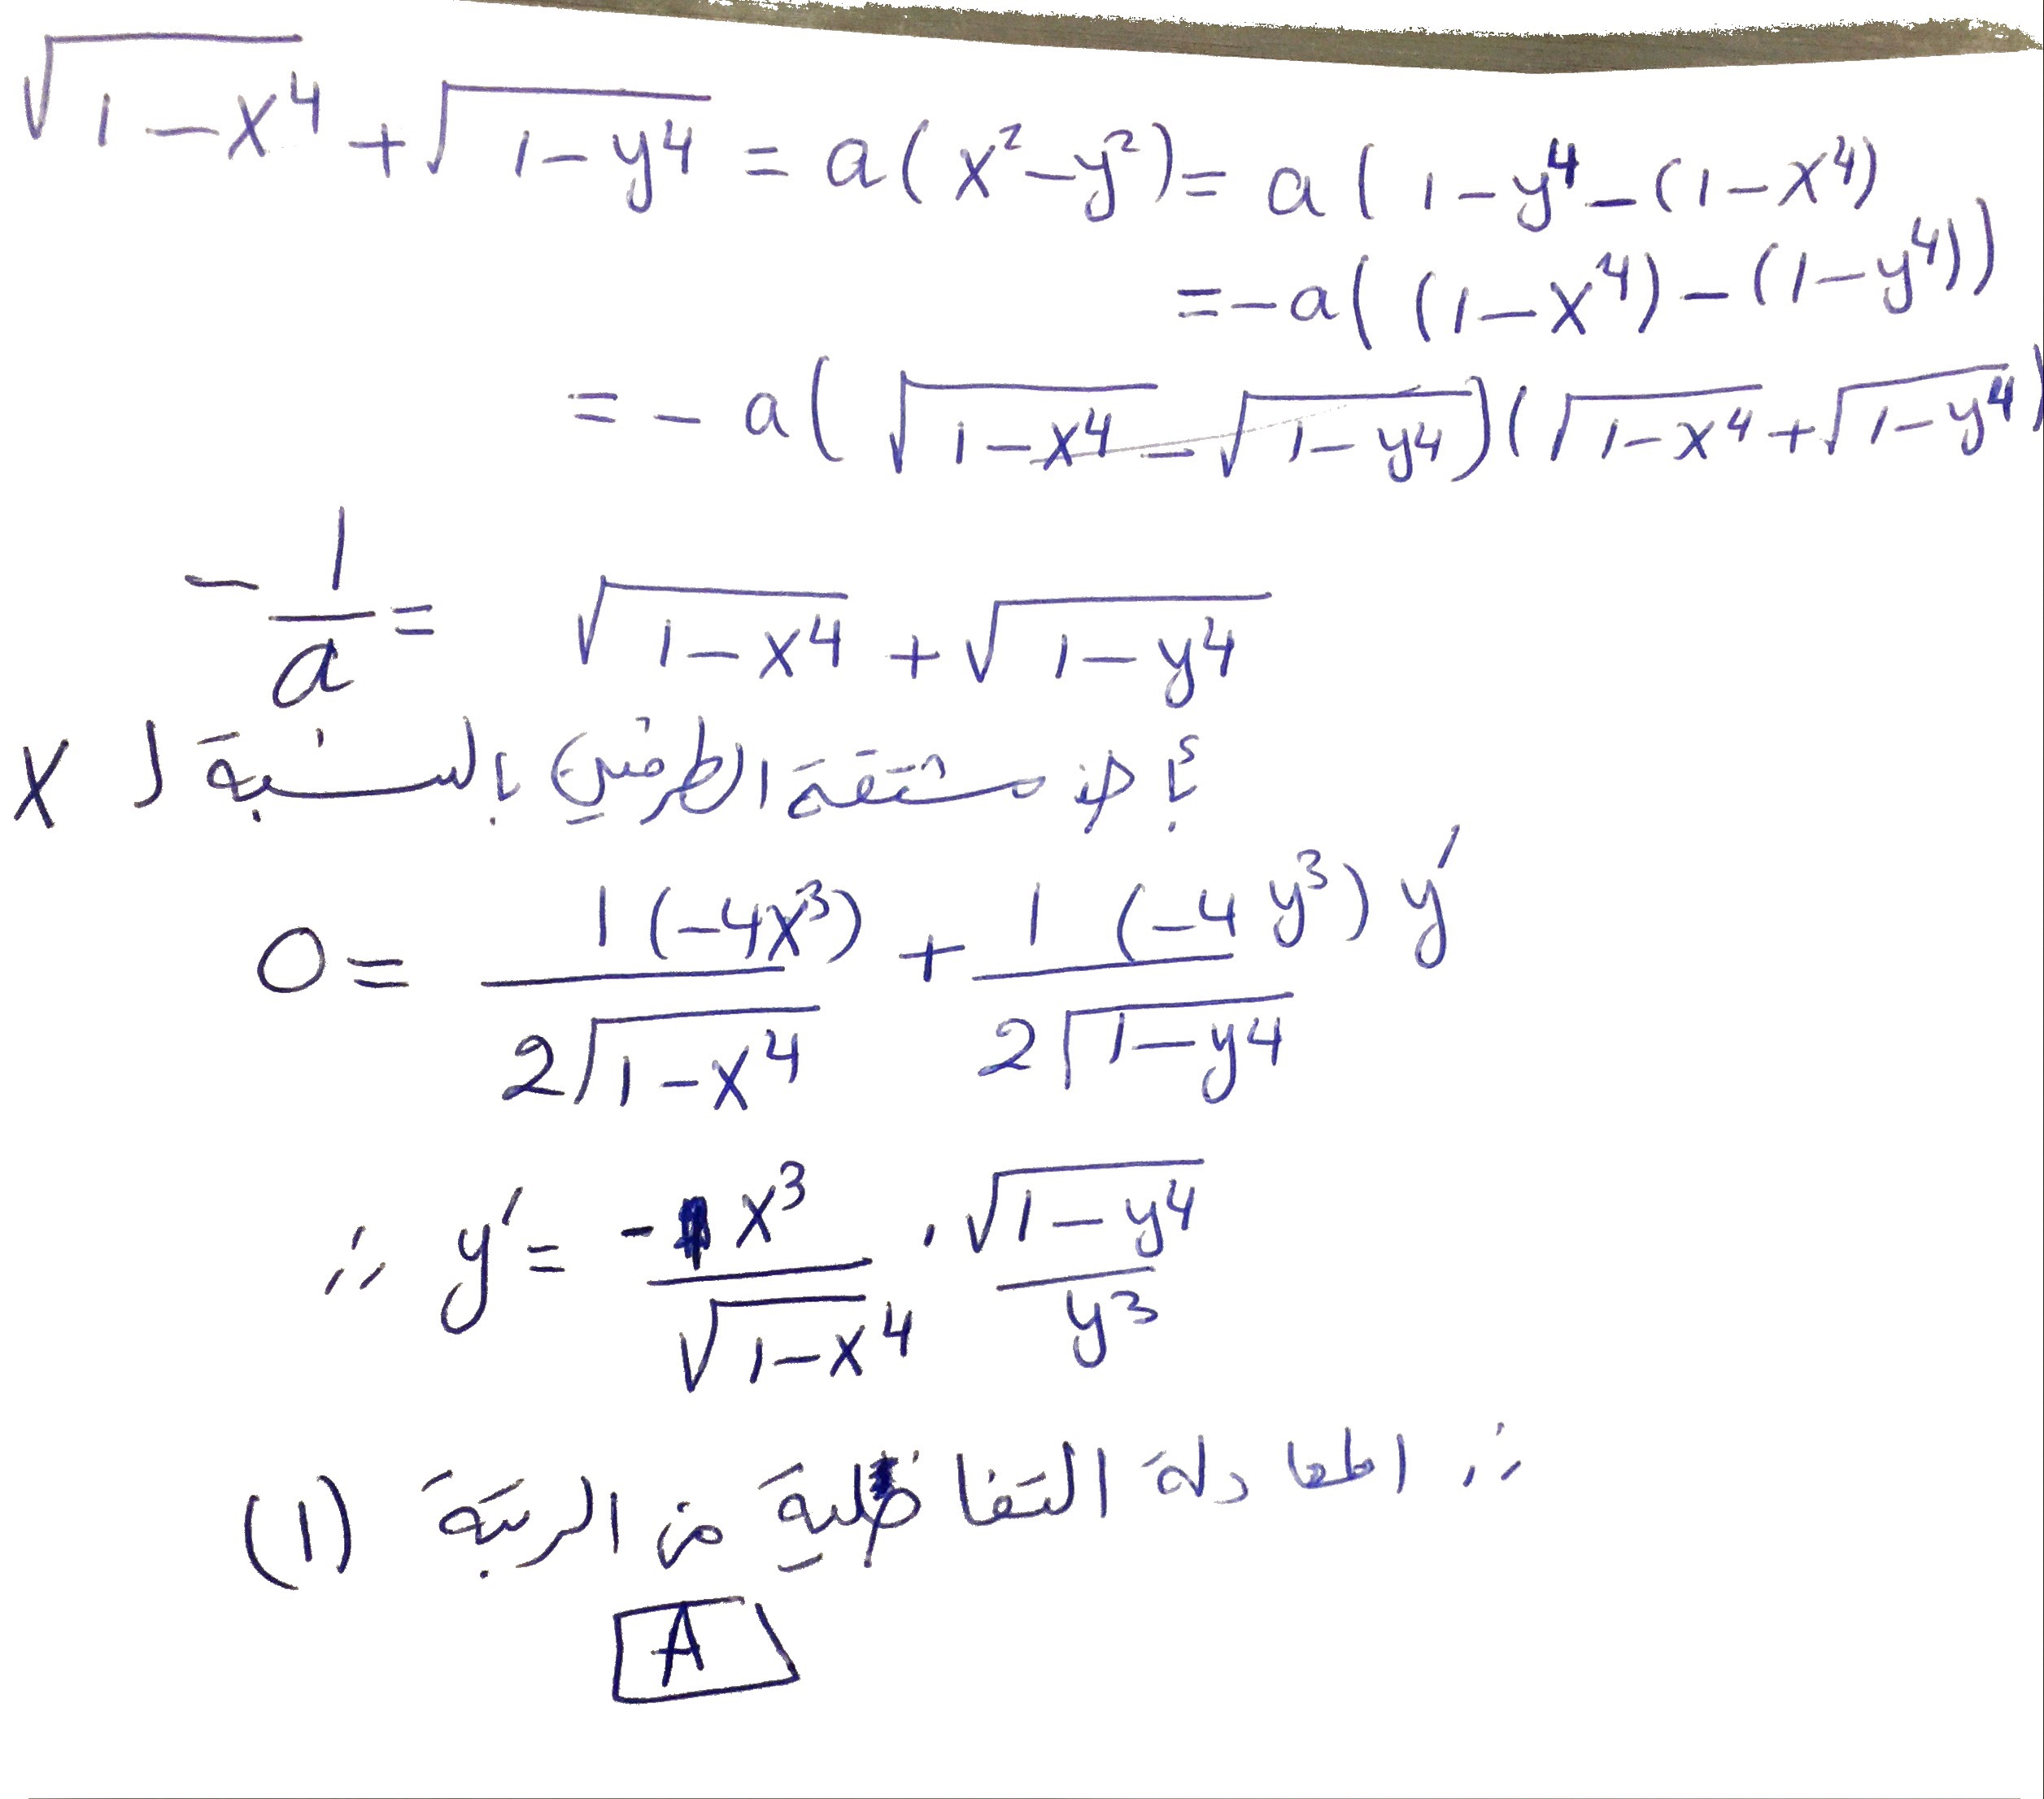 √(1-x⁴) + √(1-y⁴) = a(x²-y²) = a(1-y⁴-(1-x⁴)
= -a((1-x⁴)-(1-y⁴))
= -a(√(1-x⁴) - √(1-y⁴))(√(1-x⁴) + √(1-y⁴))
-1/a = √(1-x⁴) + √(1-y⁴)
بأخذ مشتقة الطرفين بالنسبة ل x
0 = 1(-4x³)/(2√(1-x⁴)) + 1(-4y³)y′/(2√(1-y⁴))
∴ y′ = -x³/√(1-x⁴) · √(1-y⁴)/y³
∴ المعادلة التفاضلية من الرتبة (1)
A